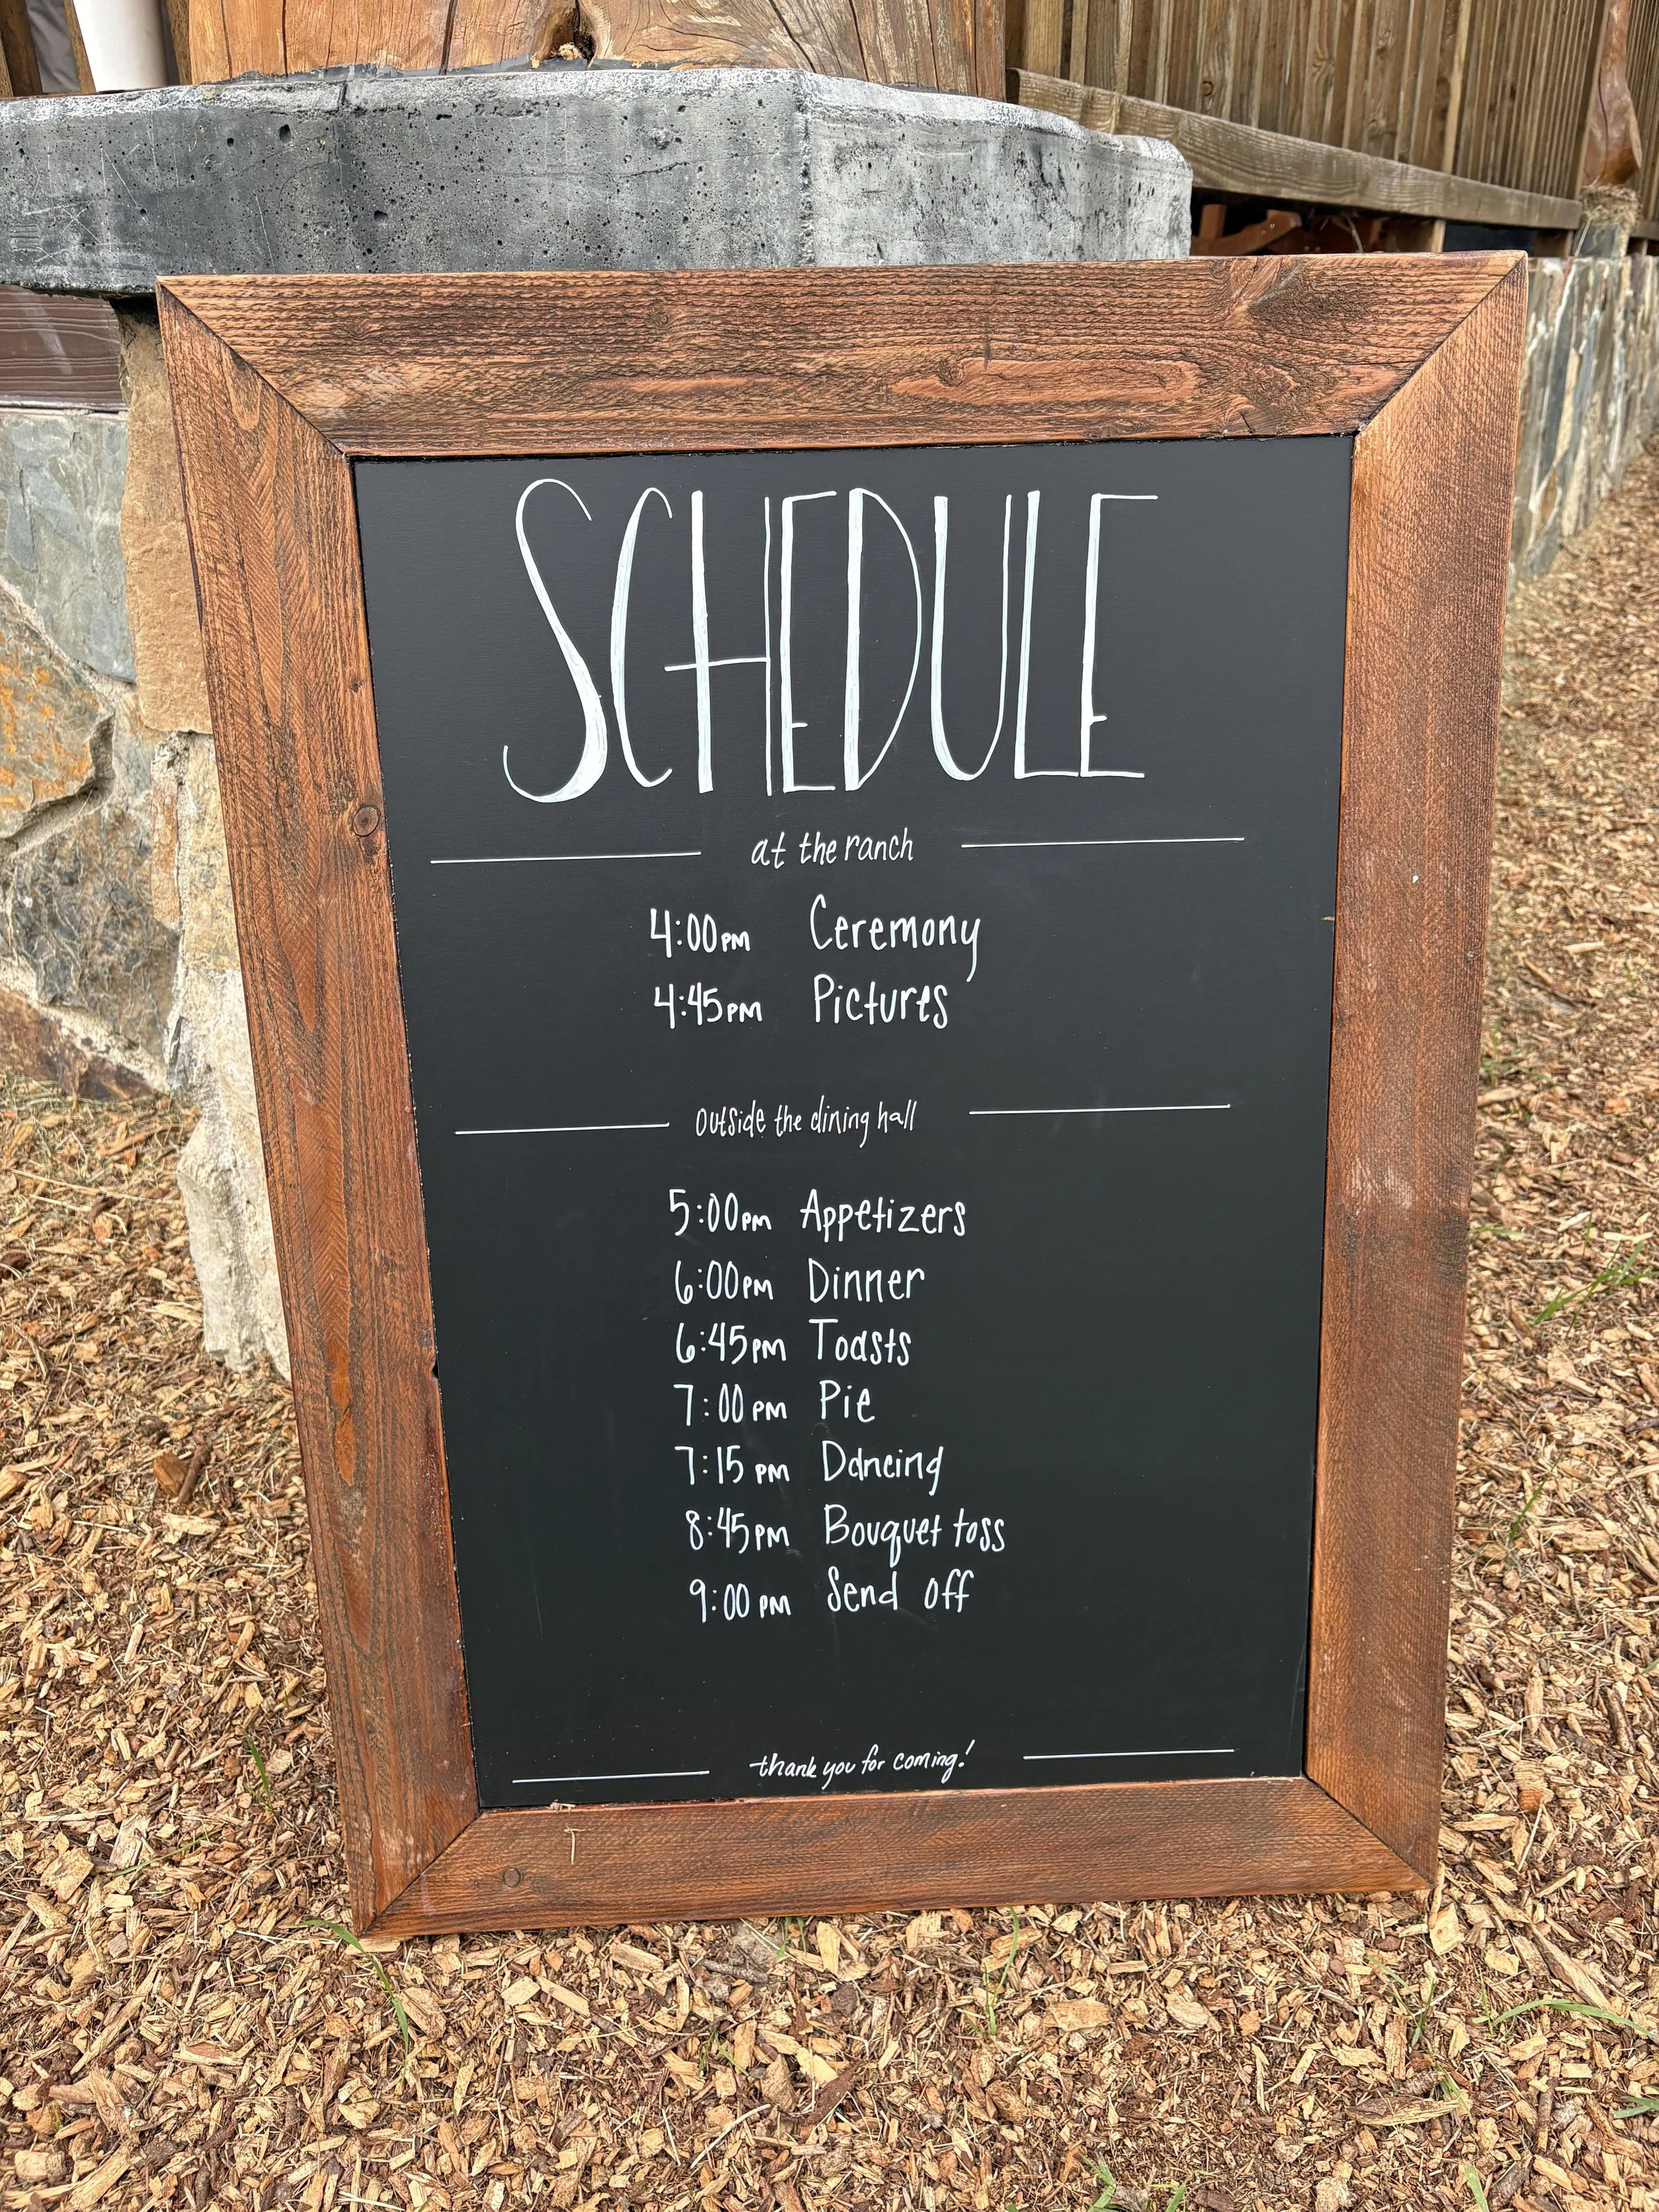 SCHEDULE
at the ranch
4:00PM Ceremony
4:45PM Pictures
outside the dining hall
5:00PM Appetizers
6:00PM Dinner
6:45PM Toasts
7:00PM Pie
7:15PM Dancing
8:45PM Bouquet toss
9:00PM Send off
thank you for coming!